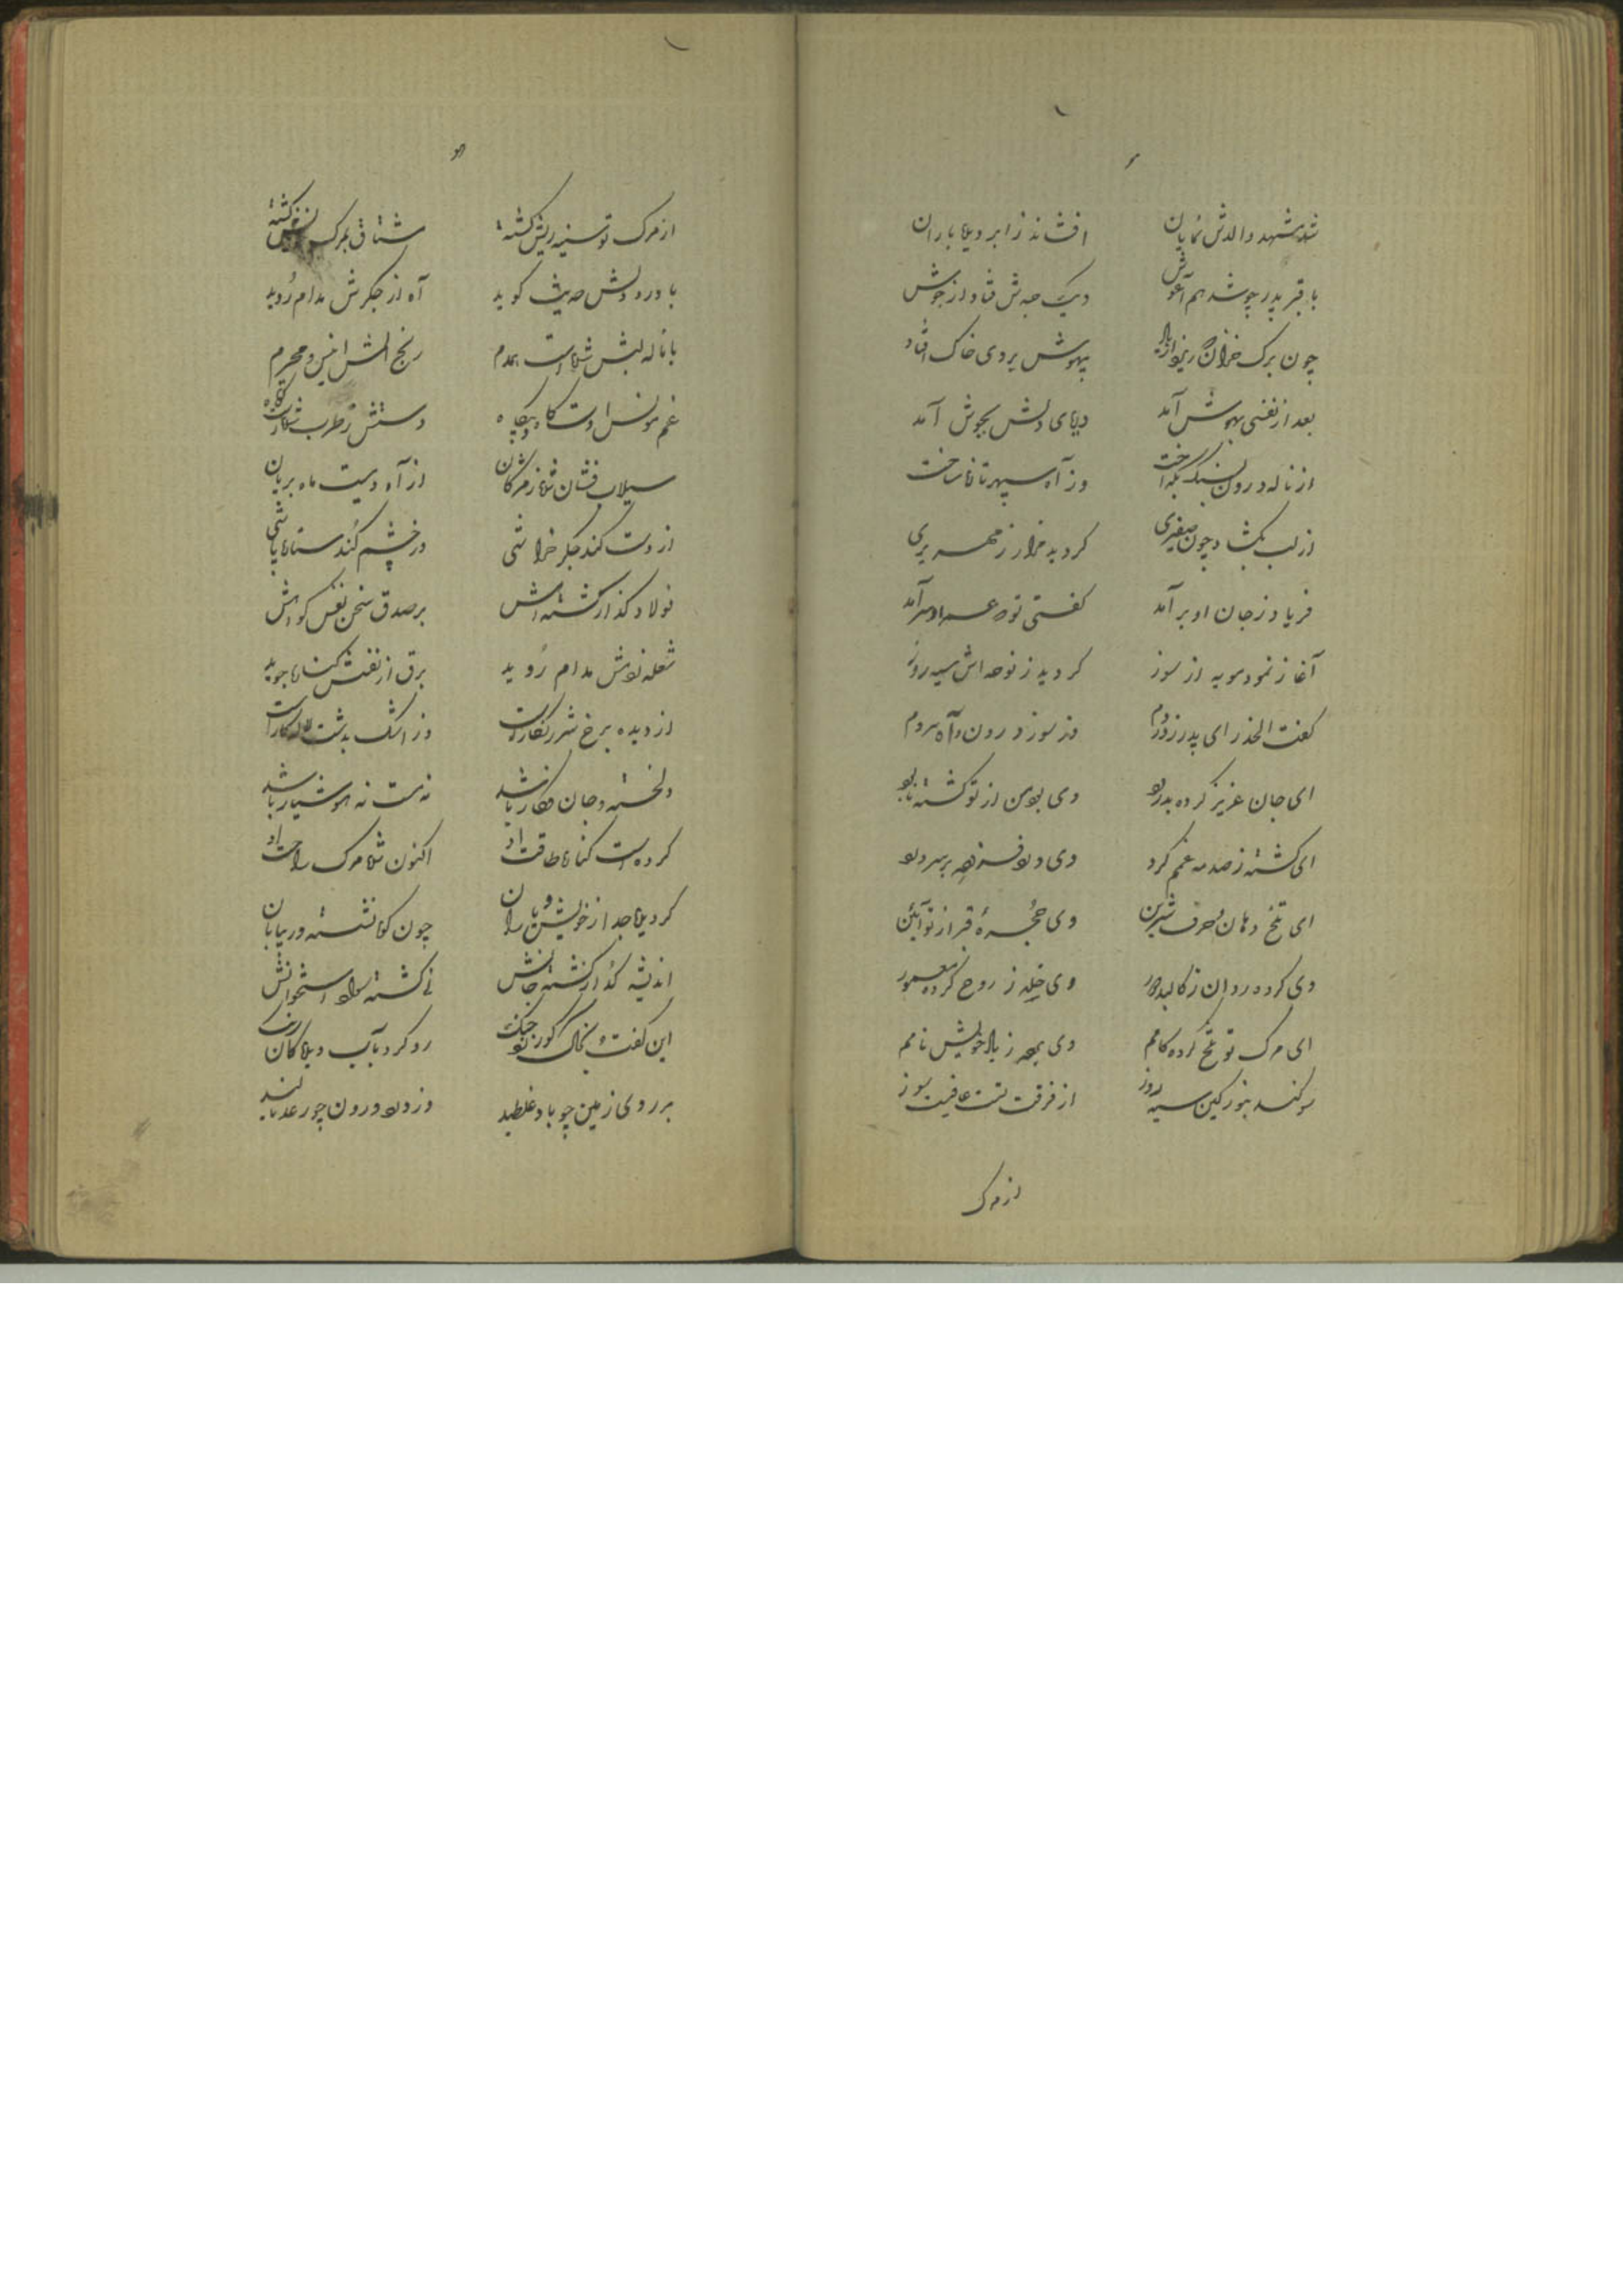 شد مشهد والدش نمایان
افشاند ز ابر دیده باران
با قبر پدر چو شد هم آغوش
دیک فتاد از جوش
چون برک خزان که ریزد از باد
بیهوش بروی خاک افتاد
بعد از نفسی بهوش آمد
دریای دلش بجوش آمد
از ناله درون سنک بگداخت
وز آه سپهر تافته ساخت
از لب بکشاد چون صفیری
کردید هزار زمهریری
فریاد ز جان او برآمد
کفتی عمر او سرآمد
آغاز نمود مویه از سوز
کردید ز نوحه اش سیه روز
کفت الحذر ای پدر ز دردم
وز سوز درون و آه سردم
ای جان عزیز کرده بدرود
وی بود من از تو کشته نابود
ای کشته ز صدمه غم کرد
وی درد
ای تلخ دهان حرف شیرین
وی حجره قبر از تو آئین
وی کرده روان ز کالبد دور
وی خله ز روح کرده معمور
ای مرک تو تلخ کرده کامم
وی ز یاد خویش نامم
سوکند بنور کین سیه روز
از فرقت تست عافیت سوز
از مرک
از مرک تو سینه ریش کشته
مشتاق بمرک خویش کشته
با درد دلش حدیث کوید
آه از جکرش مدام روید
با ناله لبش شده است همدم
رنج و المش انیس و محرم
غم مونس اوست کاه و بیکاه
دستش ز طرب شده است کوتاه
سیلاب فشان شده ز مژکان
از آه ویست ماه بریان
از دست کند جکر خراشی
در چشم کند ستاره پاشی
فولاد کداز کشته آهش
بر صدق سخن نفس کواهش
شعله ز دلش مدام روید
برق از نفسش کناره جوید
از دیده برخ شرر نکار است
وز اشک بدشت لاله کار است
دلخسته و جان فکار باشد
نه مست نه هوشیار باشد
کرده است کناره طاقت از او
اکنون شده مرک راحت از او
کردیده جدا ز خویش و یاران
چون کوه نشسته در بیابان
اندیشه کداز کشته جانش
نی کشته سواد استخوانش
این کفت و بخاک کور زد چنک
رو کرد بآب دیده کلرنک
بر روی زمین چو باد غلطید
وز درد درون چو رعد نالید